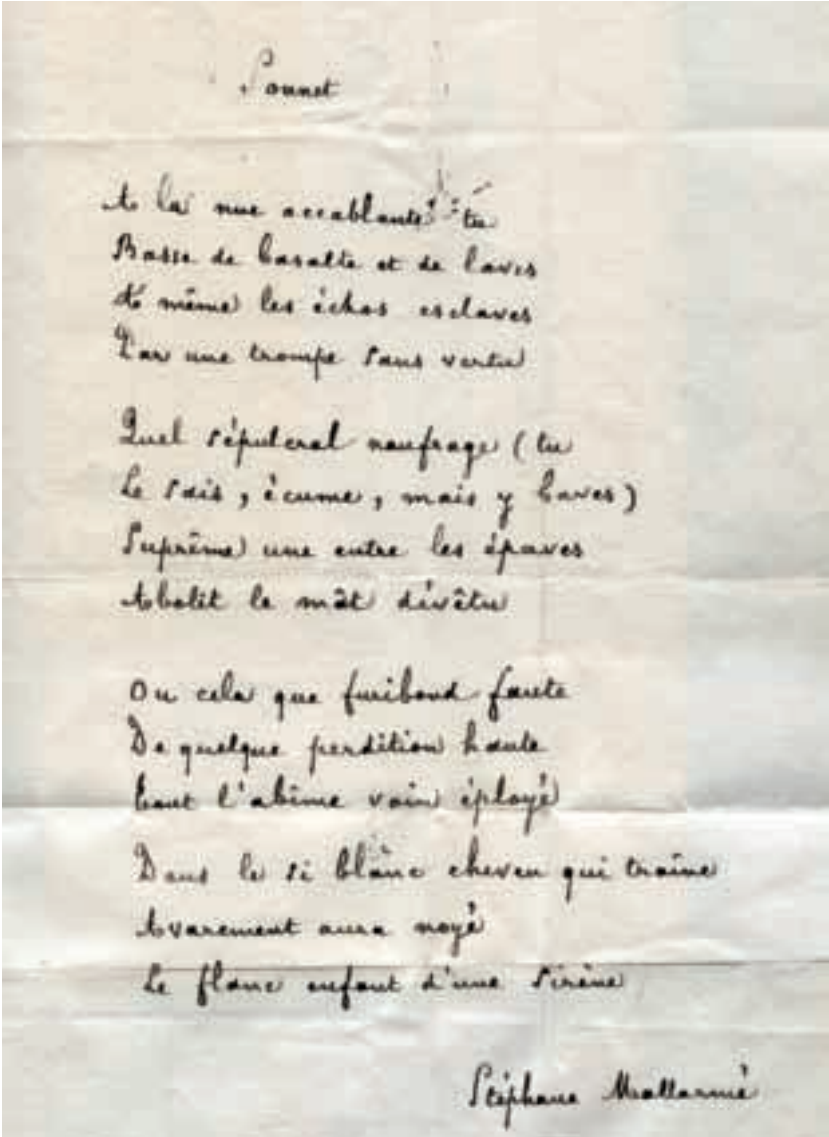 Sonnet
A la nue accablante tu
Basse de basalte et de laves
A même les échos esclaves
Par une trompe sans vertu
Quel sépulcral naufrage (tu
Le sais, écume, mais y baves)
Suprême une entre les épaves
Abolit le mât dévêtu
Ou cela que furibond faute
De quelque perdition haute
Tout l'abîme vain éployé
Dans le si blanc cheveu qui traîne
Avarement aura noyé
Le flanc enfant d'une sirène
Stéphane Mallarmé